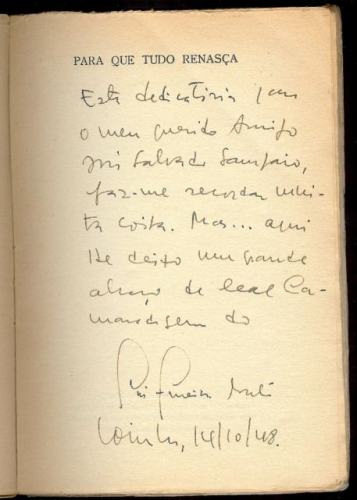 PARA QUE TUDO RENASÇA
Esta dedicatória para
o meu querido Amigo
José Salvado Sampaio,
faz-me recordar mui-
ta coisa. Mas... aqui
lhe deixo um grande
abraço de leal Ca-
maradagem do
14/10/48.